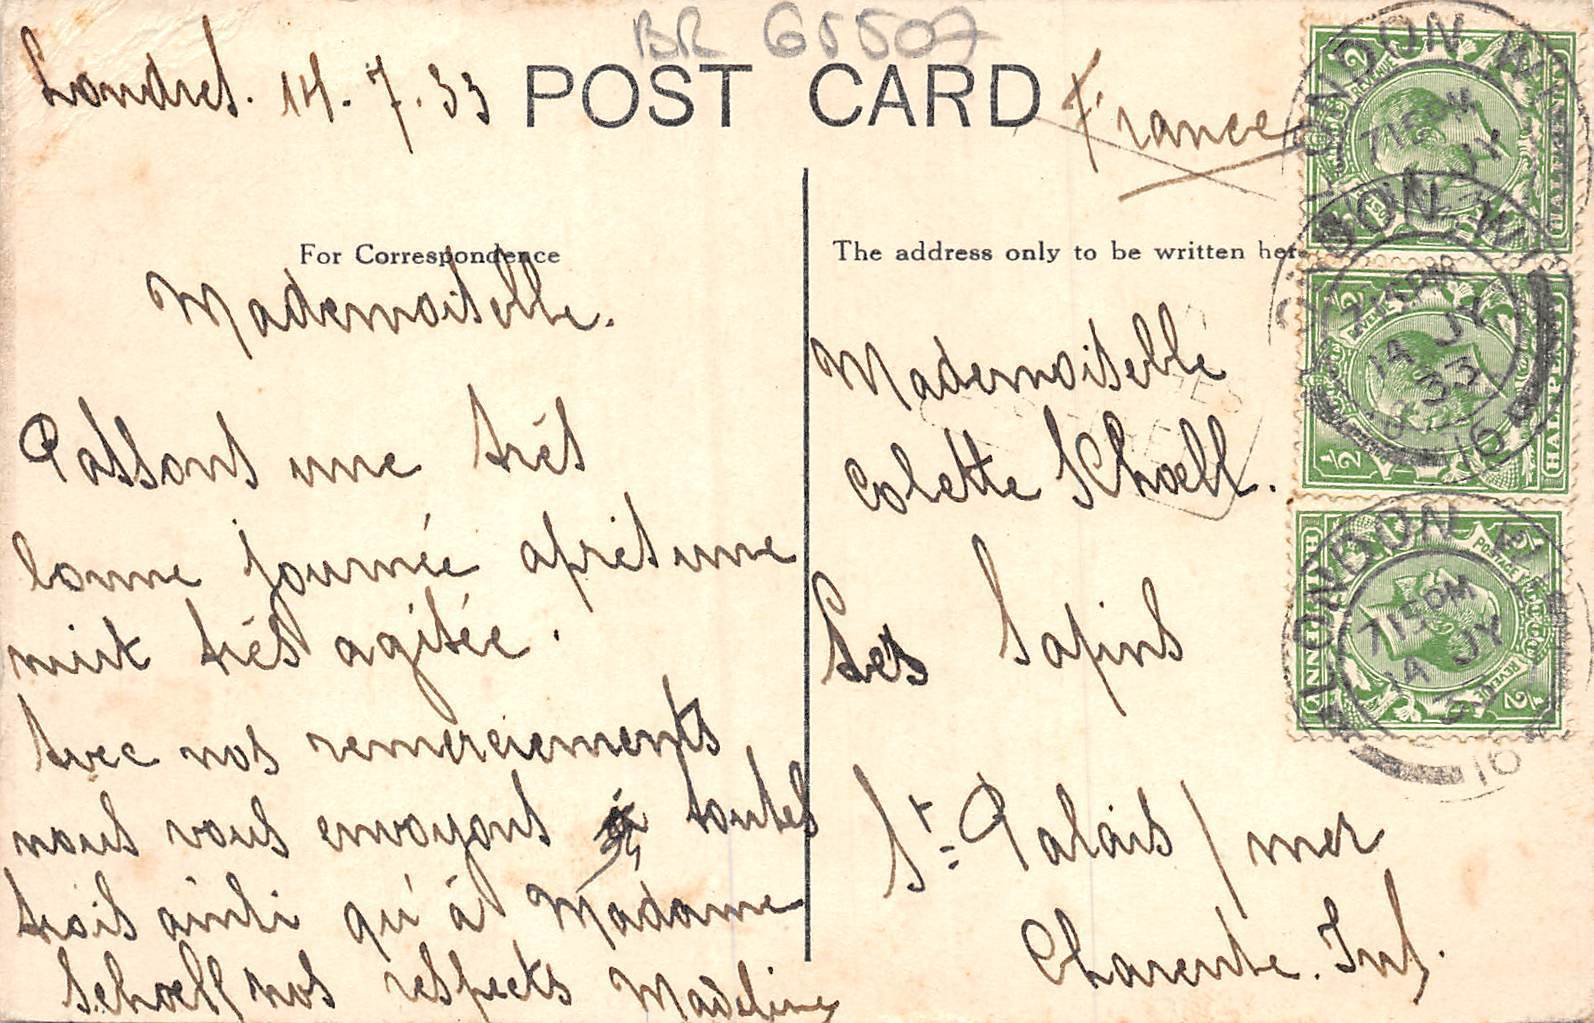 BR 65507
Londres. 14-7.33
POST CARD
France
For Correspondence
The address only to be written here
Mademoiselle.
Passons une très
bonne journée après une
nuit très agitée.
Avec nos remerciements
nous vous envoyons à toutes
trois ainsi qu'à Madame
Schoell nos respects Madeline
Mademoiselle
Colette Schoell.
Les Sapins
St. Palais / mer
Charente. Inf.
LONDON W
715PM
14 JY
33
16
POSTAGE REVENUE
HALFPENNY
1/2
LONDON W
715PM
14 JY
33
16
REVENUE
HALFPENNY
1/2
LONDON W
715PM
14 JY
33
16
POSTAGE REVENUE
HALFPENNY
1/2